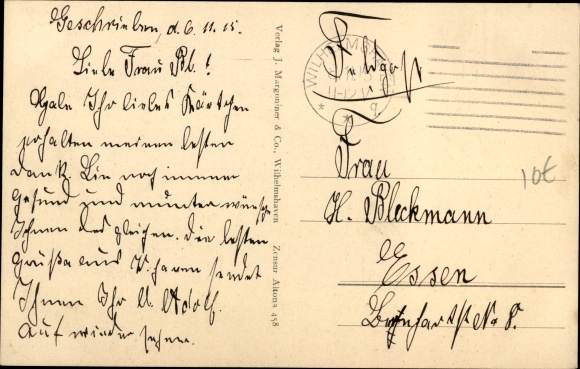 Geschrieben, d. 6. 11. 15.
Liebe Frau Bl.!
Habe Ihr liebes Kärtchen
erhalten meinen besten
Dank. Bin noch immer
gesund und munter wünsche
Ihnen des gleichen. Die besten
Grüße aus W.haven sendet
Ihnen Ihr Adolf.
Auf wieder sehen.
Verlag J. Margoniner & Co., Wilhelmshaven Zensur Altona 458
Feldpost
WILHELMSH
11-12
Frau
H. Bleckmann
Essen
10€